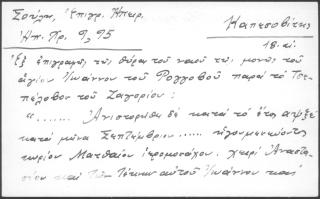 Σούλη, Ἐπιγρ. Ἠπείρ. Καπεσοβίτης
Ἠπ. Χρ. 9, 95 18. αἰ.
Ἐξ ἐπιγραφῆς τῆς θύρας τοῦ ναοῦ τῆς μονῆς τοῦ
ἁγίου Ἰωάννου τοῦ Ρογγοβοῦ παρὰ τὸ Τσε-
πέλοβον τοῦ Ζαγορίου :
"....... Ἀνιστορήθη δὲ κατὰ τὸ ἔτος αψξε
κατὰ μῆνα Σεπτέμβριον ...... ἡγουμενεύοντος
κυρίου Ματθαίου ἱερομονάχου. χειρὶ Ἀναστα-
σίου καὶ τῶν τέκνων αὐτοῦ Ἰωάννου καὶ